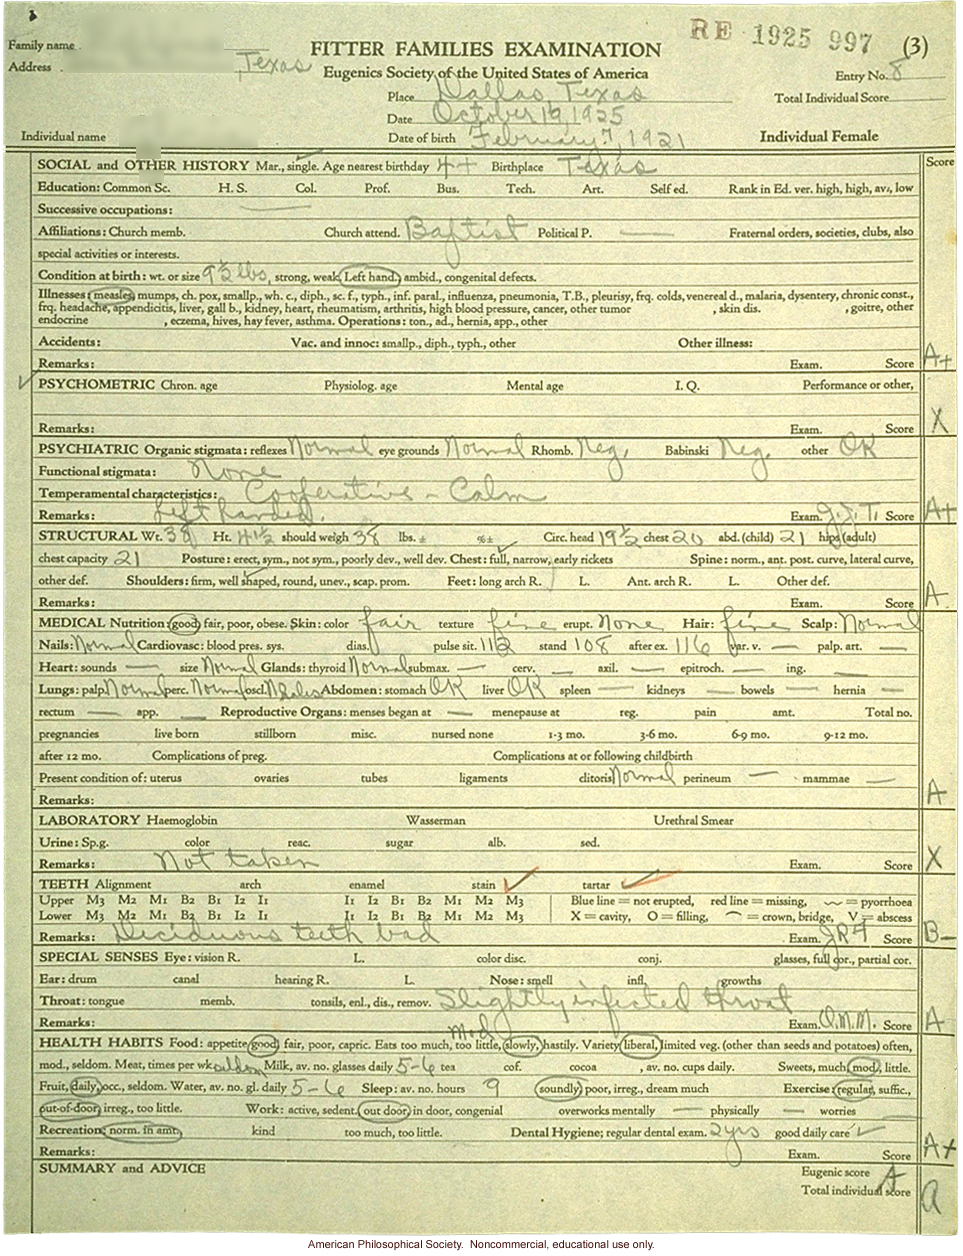 RE 1925 997 (3)
Family name
FITTER FAMILIES EXAMINATION
Address Texas
Eugenics Society of the United States of America
Entry No. 8
Place Dallas, Texas
Total Individual Score
Date October 19, 1925
Individual name
Date of birth February 7, 1921
Individual Female
SOCIAL and OTHER HISTORY Mar., single. Age nearest birthday 4+ Birthplace Texas Score
Education: Common Sc. H. S. Col. Prof. Bus. Tech. Art. Self ed. Rank in Ed. ver. high, high, av., low
Successive occupations:
Affiliations: Church memb. Church attend. Baptist Political P. — Fraternal orders, societies, clubs, also
special activities or interests.
Condition at birth: wt. or size 9½ lbs, strong, weak, Left hand, ambid., congenital defects.
Illnesses: measles, mumps, ch. pox, smallp., wh. c., diph., sc. f., typh., inf. paral., influenza, pneumonia, T.B., pleurisy, frq. colds, venereal d., malaria, dysentery, chronic const.,
frq. headache, appendicitis, liver, gall b., kidney, heart, rheumatism, arthritis, high blood pressure, cancer, other tumor , skin dis. , goitre, other
endocrine , eczema, hives, hay fever, asthma. Operations: ton., ad., hernia, app., other
Accidents: Vac. and innoc: smallp., diph., typh., other Other illness:
Remarks: Exam. Score A+
PSYCHOMETRIC Chron. age Physiolog. age Mental age I. Q. Performance or other,
Remarks: Exam. Score X
PSYCHIATRIC Organic stigmata: reflexes Normal eye grounds Normal Rhomb. Neg. Babinski Neg. other OK
Functional stigmata: None
Temperamental characteristics: Cooperative - Calm
Remarks: Left handed. Exam. J.J.T. Score A+
STRUCTURAL Wt. 38 Ht. 41½ should weigh 38 lbs. ± %± Circ. head 19½ chest 20 abd. (child) 21 hips (adult)
chest capacity 21 Posture: erect, sym., not sym., poorly dev., well dev. Chest: full, narrow, early rickets Spine: norm., ant. post. curve, lateral curve,
other def. Shoulders: firm, well shaped, round, unev., scap. prom. Feet: long arch R. L. Ant. arch R. L. Other def.
Remarks: Exam. Score A
MEDICAL Nutrition: good, fair, poor, obese. Skin: color fair texture fine erupt. None Hair: fine Scalp: Normal
Nails: Normal Cardiovasc: blood pres. sys. dias. pulse sit. 112 stand 108 after ex. 116 var. v. — palp. art. —
Heart: sounds — size Normal Glands: thyroid Normal submax. — cerv. — axil. — epitroch. — ing. —
Lungs: palp. Normal perc. Normal oscl. Abdomen: stomach OK liver OK spleen — kidneys — bowels — hernia —
rectum — app. — Reproductive Organs: menses began at — menopause at reg. pain amt. Total no.
pregnancies live born stillborn misc. nursed none 1-3 mo. 3-6 mo. 6-9 mo. 9-12 mo.
after 12 mo. Complications of preg. Complications at or following childbirth
Present condition of: uterus ovaries tubes ligaments clitoris Normal perineum — mammae —
Remarks: A
LABORATORY Haemoglobin Wasserman Urethral Smear
Urine: Sp.g. color reac. sugar alb. sed.
Remarks: Not taken Exam. Score X
TEETH Alignment arch enamel stain ✓ tartar ✓
Upper M3 M2 M1 B2 B1 I2 I1 I1 I2 B1 B2 M1 M2 M3 Blue line = not erupted, red line = missing, = pyorrhoea
Lower M3 M2 M1 B2 B1 I2 I1 I1 I2 B1 B2 M1 M2 M3 X = cavity, O = filling, = crown, bridge, V = abscess
Remarks: Deciduous teeth bad Exam. Score B-
SPECIAL SENSES Eye: vision R. L. color disc. conj. glasses, full cor., partial cor.
Ear: drum canal hearing R. L. Nose: smell infl. growths
Throat: tongue memb. tonsils, enl., dis., remov. Slightly infected throat
Remarks: Exam. O.M.M. Score A-
Mod
HEALTH HABITS Food: appetite good, fair, poor, capric. Eats too much, too little, slowly, hastily. Variety liberal, limited veg. (other than seeds and potatoes) often,
mod., seldom. Meat, times per wk. seldom Milk, av. no. glasses daily 5-6 tea cof. cocoa , av. no. cups daily. Sweets, much, mod., little.
Fruit, daily, occ., seldom. Water, av. no. gl. daily 5-6 Sleep: av. no. hours 9 soundly, poor, irreg., dream much Exercise: regular, suffic.,
out-of-door, irreg., too little. Work: active, sedent. out door, in door, congenial overworks mentally — physically — worries —
Recreation: norm. in amt. kind too much, too little. Dental Hygiene; regular dental exam. 2yrs good daily care ✓
Remarks: Exam. Score A+
SUMMARY and ADVICE Eugenic score A
Total individual score A
American Philosophical Society. Noncommercial, educational use only.